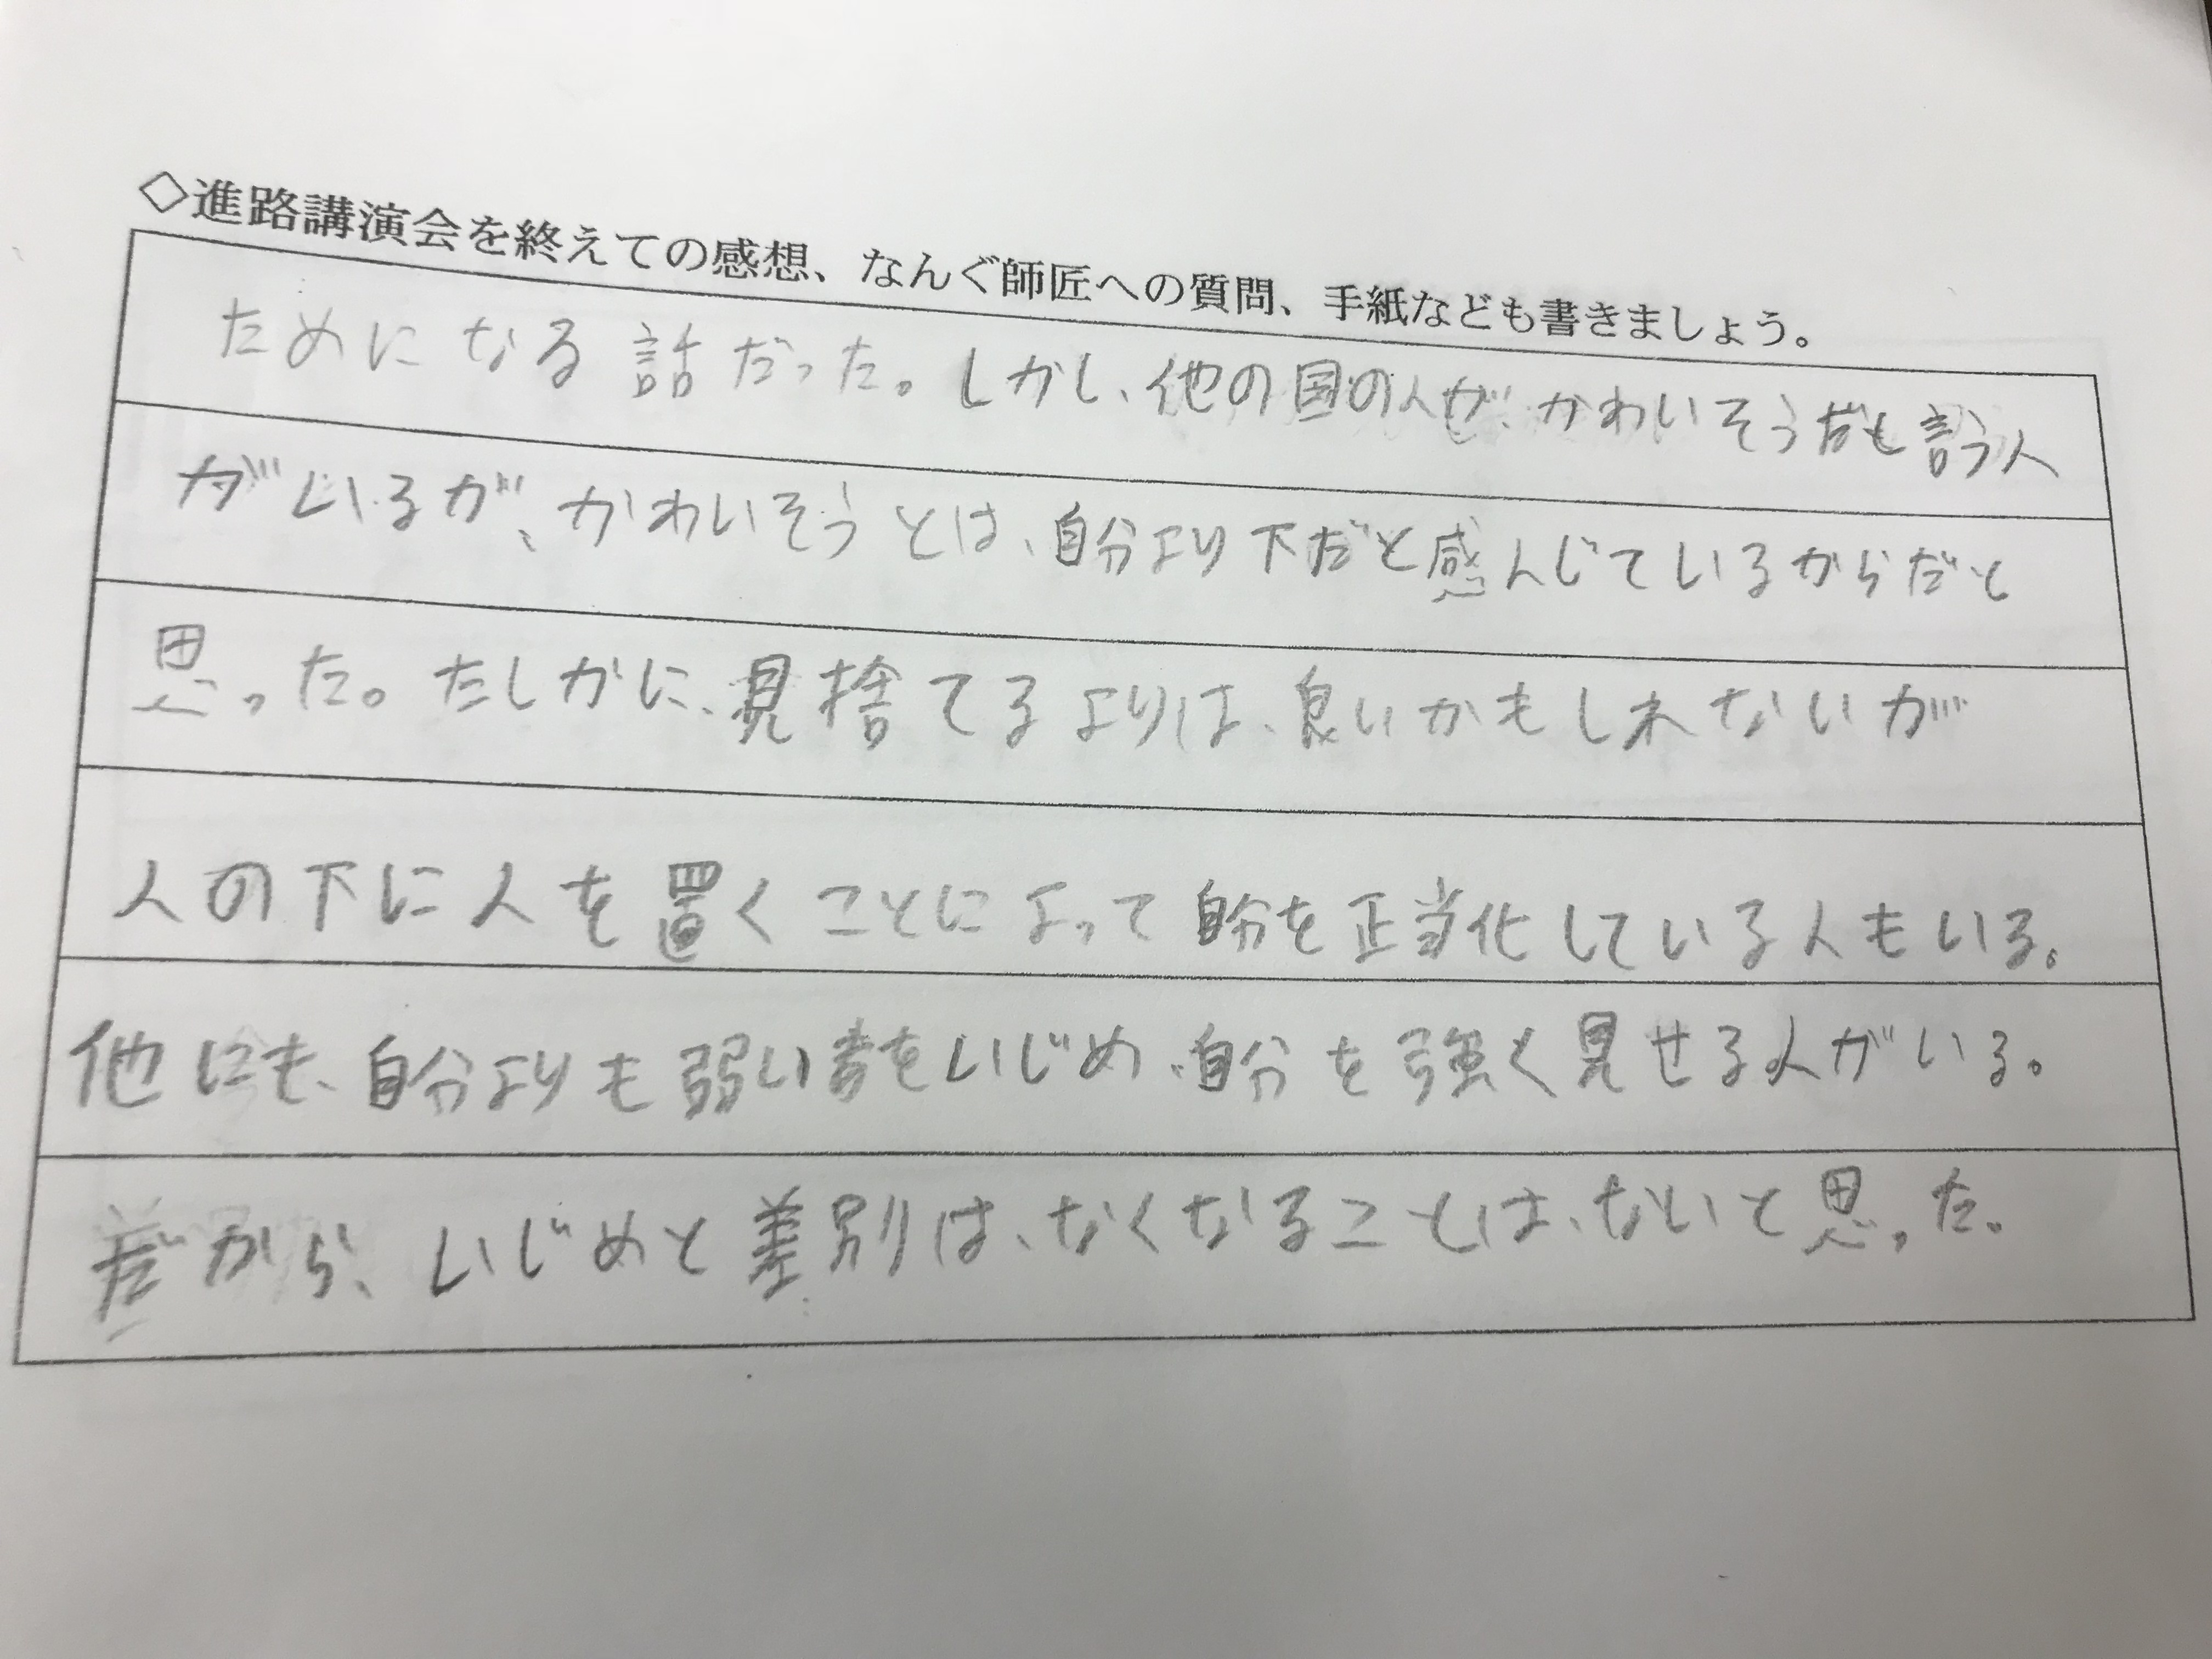 ◇進路講演会を終えての感想、なんぐ師匠への質問、手紙なども書きましょう。
ためになる話だった。しかし、他の国の人が、かわいそうだも言う人
がいるが、かわいそうとは、自分より下だと感んじているからだと
思った。たしかに、見捨てるよりは、良いかもしれないが
人の下に人を置くことによって自分を正当化している人もいる。
他にも、自分よりも弱い者をいじめ、自分を強く見せる人がいる。
だから、いじめと差別は、なくなることは、ないと思った。